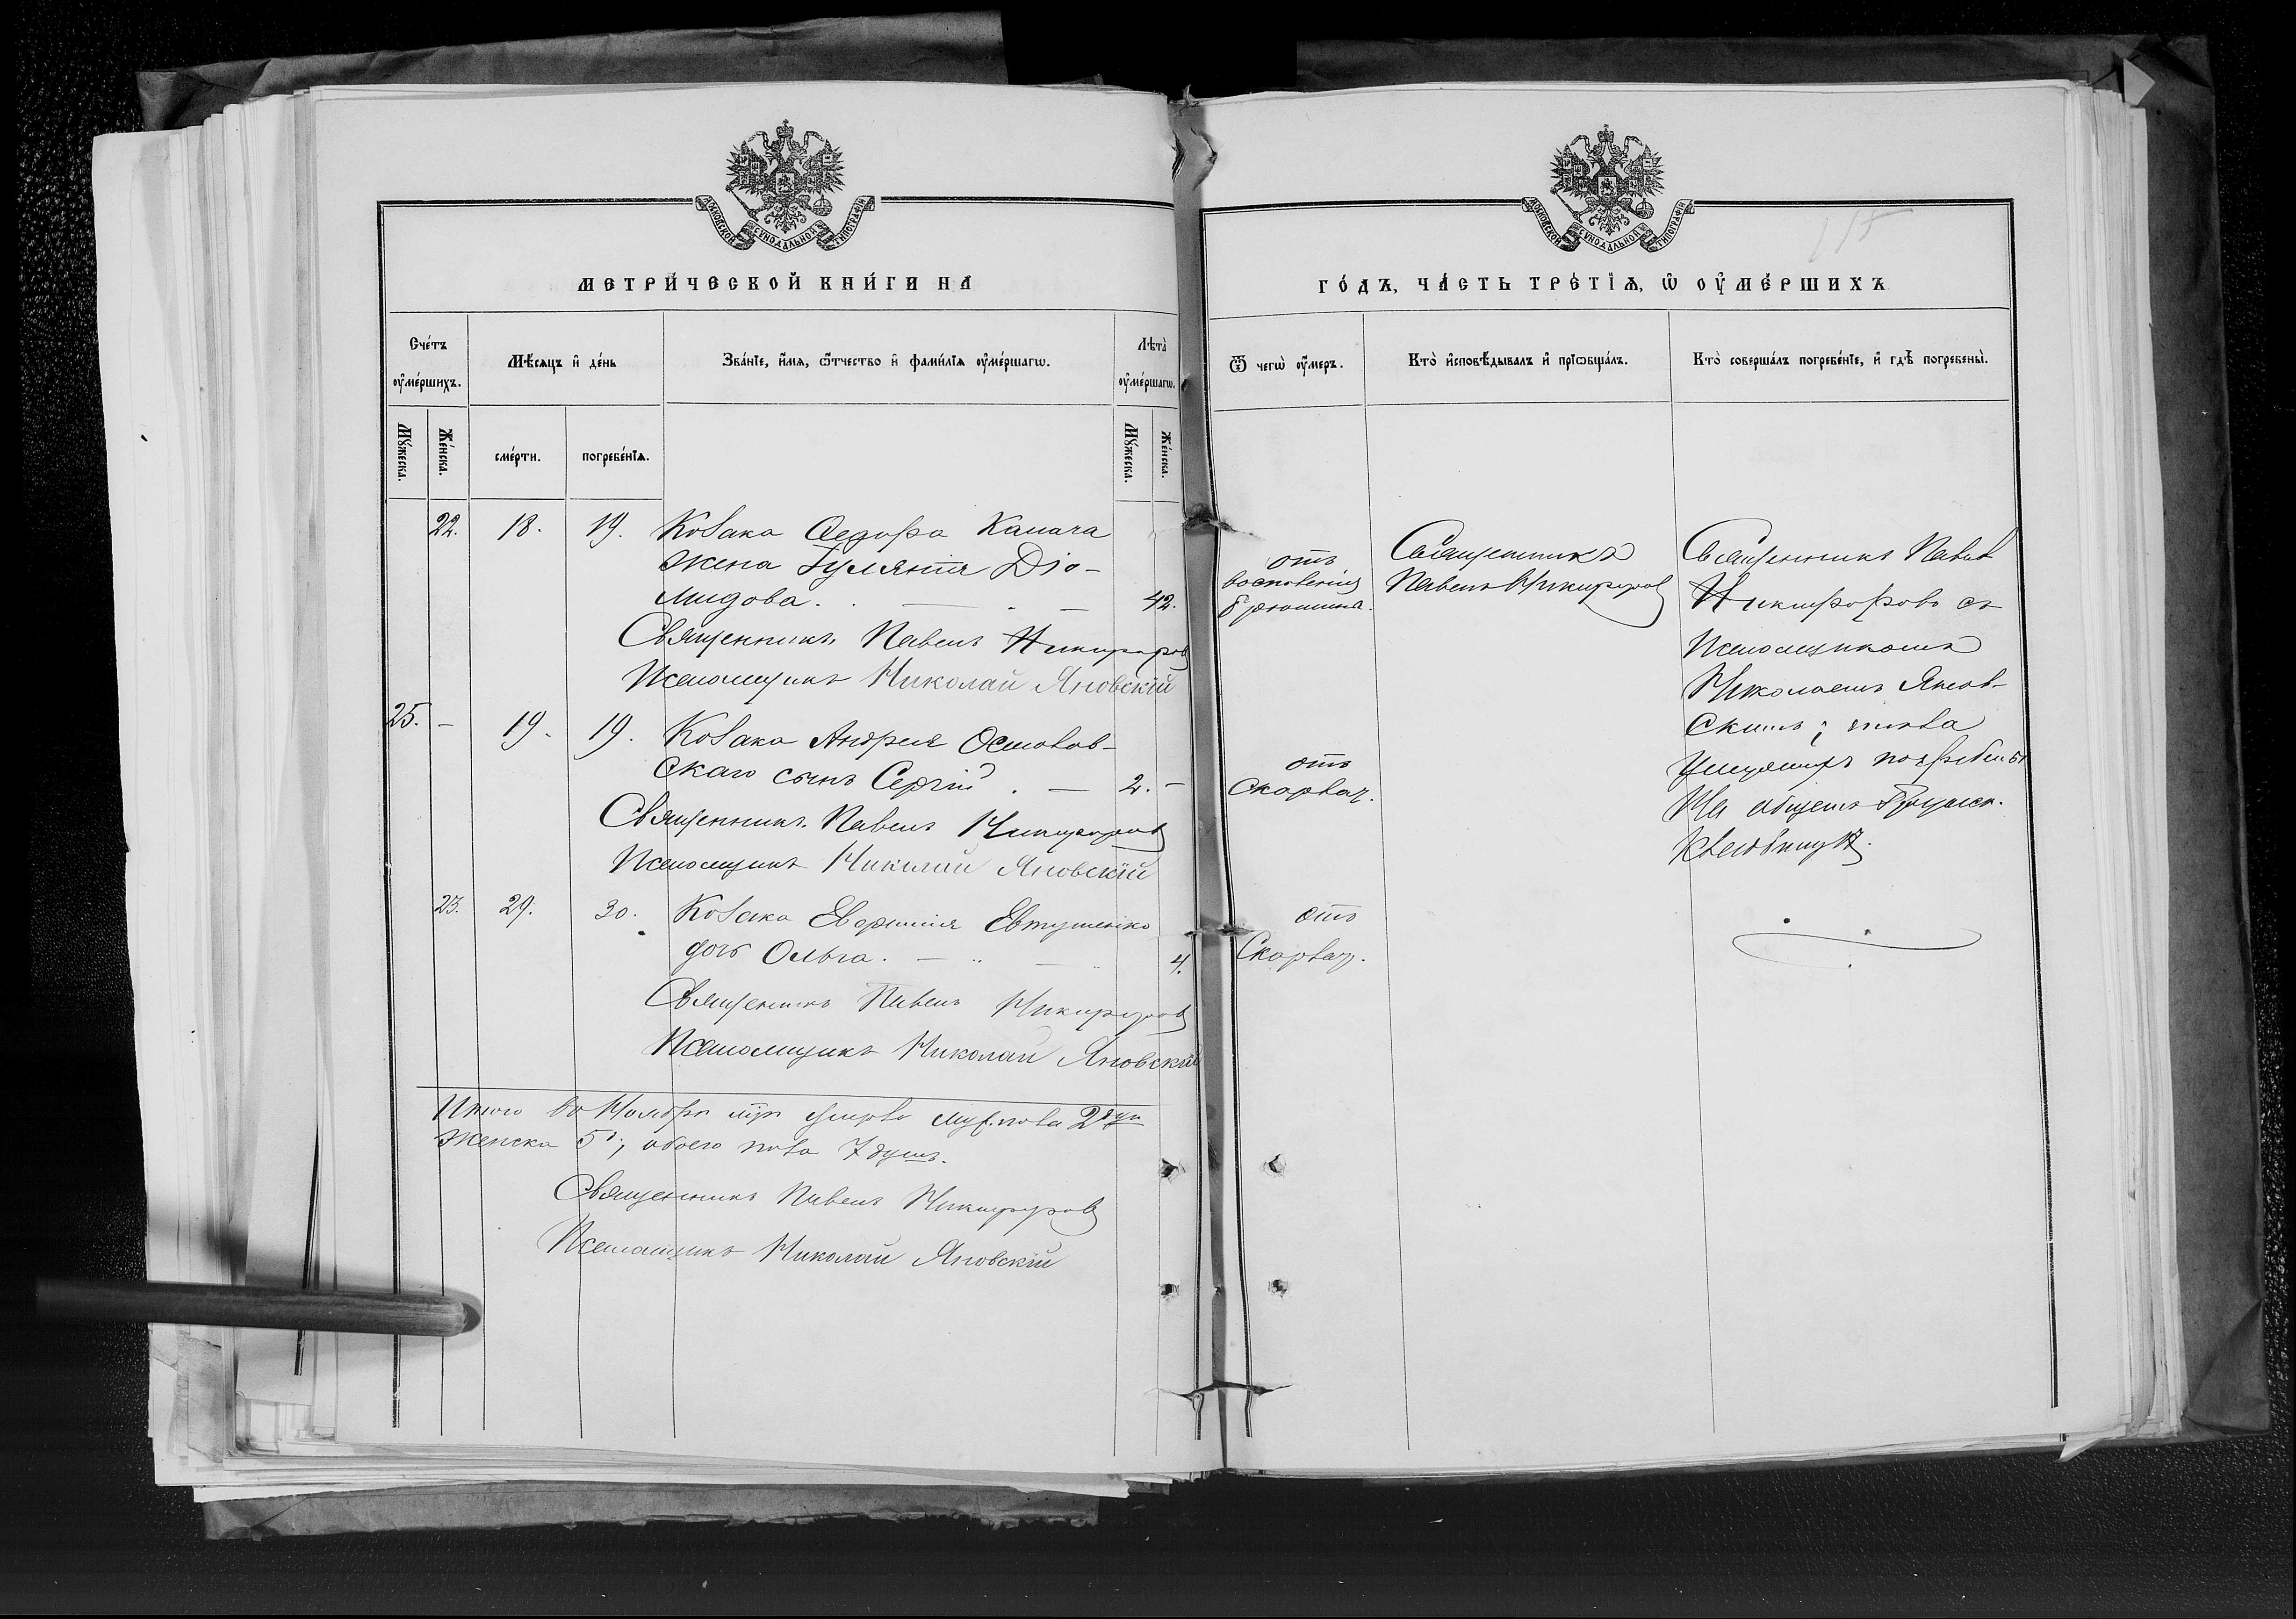 МОСКОВСКОЙ СУНОДАЛЬНОЙ ТИПОГРАФІИ
МЕТРИ́ЧЕСКОЙ КНИ́ГИ НА
Сче́тъ ᲂу҆ме́ршихъ.
Мѣ́сяцъ и҆ де́нь
Зва́нїе, и҆́мѧ, ѻ҆́тчество и҆ фами́лїѧ ᲂу҆ме́ршагѡ.
Лѣ́та ᲂу҆ме́ршагѡ.
Мꙋ́жеска.
Же́нска.
сме́рти.
погребе́нїѧ.
Мꙋ́жеска.
Же́нска.
22. 18. 19. Козака Ѳеодора Канача
жена Іуліянія Діо-
мидова. 42.
Священникъ Павелъ Никифоровъ
Псаломщикъ Николай Яновскій
25. - 19. 19. Козака Андрея Осмолов-
скаго сынъ Сергій. — 2. -
Священникъ Павелъ Никифоровъ
Псаломщикъ Николай Яновскій
23. 29. 30. Козака Евфимія Евтушенко
дочь Ольга. — 4.
Священникъ Павелъ Никифоровъ
Псаломщикъ Николай Яновскій
Итого во Ноябрѣ мцѣ умерло муж. пола 2 душ.
женска 5; обоего пола 7 душъ.
Священникъ Павелъ Никифоровъ
Псаломщикъ Николай Яновскій
МОСКОВСКОЙ СУНОДАЛЬНОЙ ТИПОГРАФІИ
115
ГО́ДЪ, ЧА́СТЬ ТРЕ́ТЇѦ, Ѡ҆ ОУ҆МЕ́РШИХЪ
Ѿ чегѡ̀ ᲂу҆́меръ.
Кто̀ и҆сповѣ́дывалъ и҆ прїѡбща́лъ.
Кто̀ соверша́лъ погребе́нїе, и҆ гдѣ̀ погребены̀.
отъ
воспаленія
брюшины.
Священникъ
Павелъ Никифоровъ
Священникъ Павелъ
Никифоровъ съ
Псаломщикомъ
Николаемъ Янов-
скимъ; тѣла
умершихъ погребены
На общемъ приходск.
кладбищѣ.
отъ
Скарлат.
отъ
Скарлат.